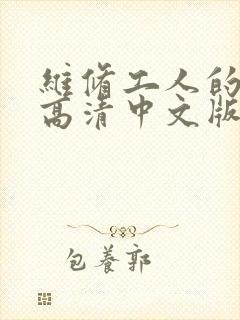 維脩工人的
高清中文版
包養郭